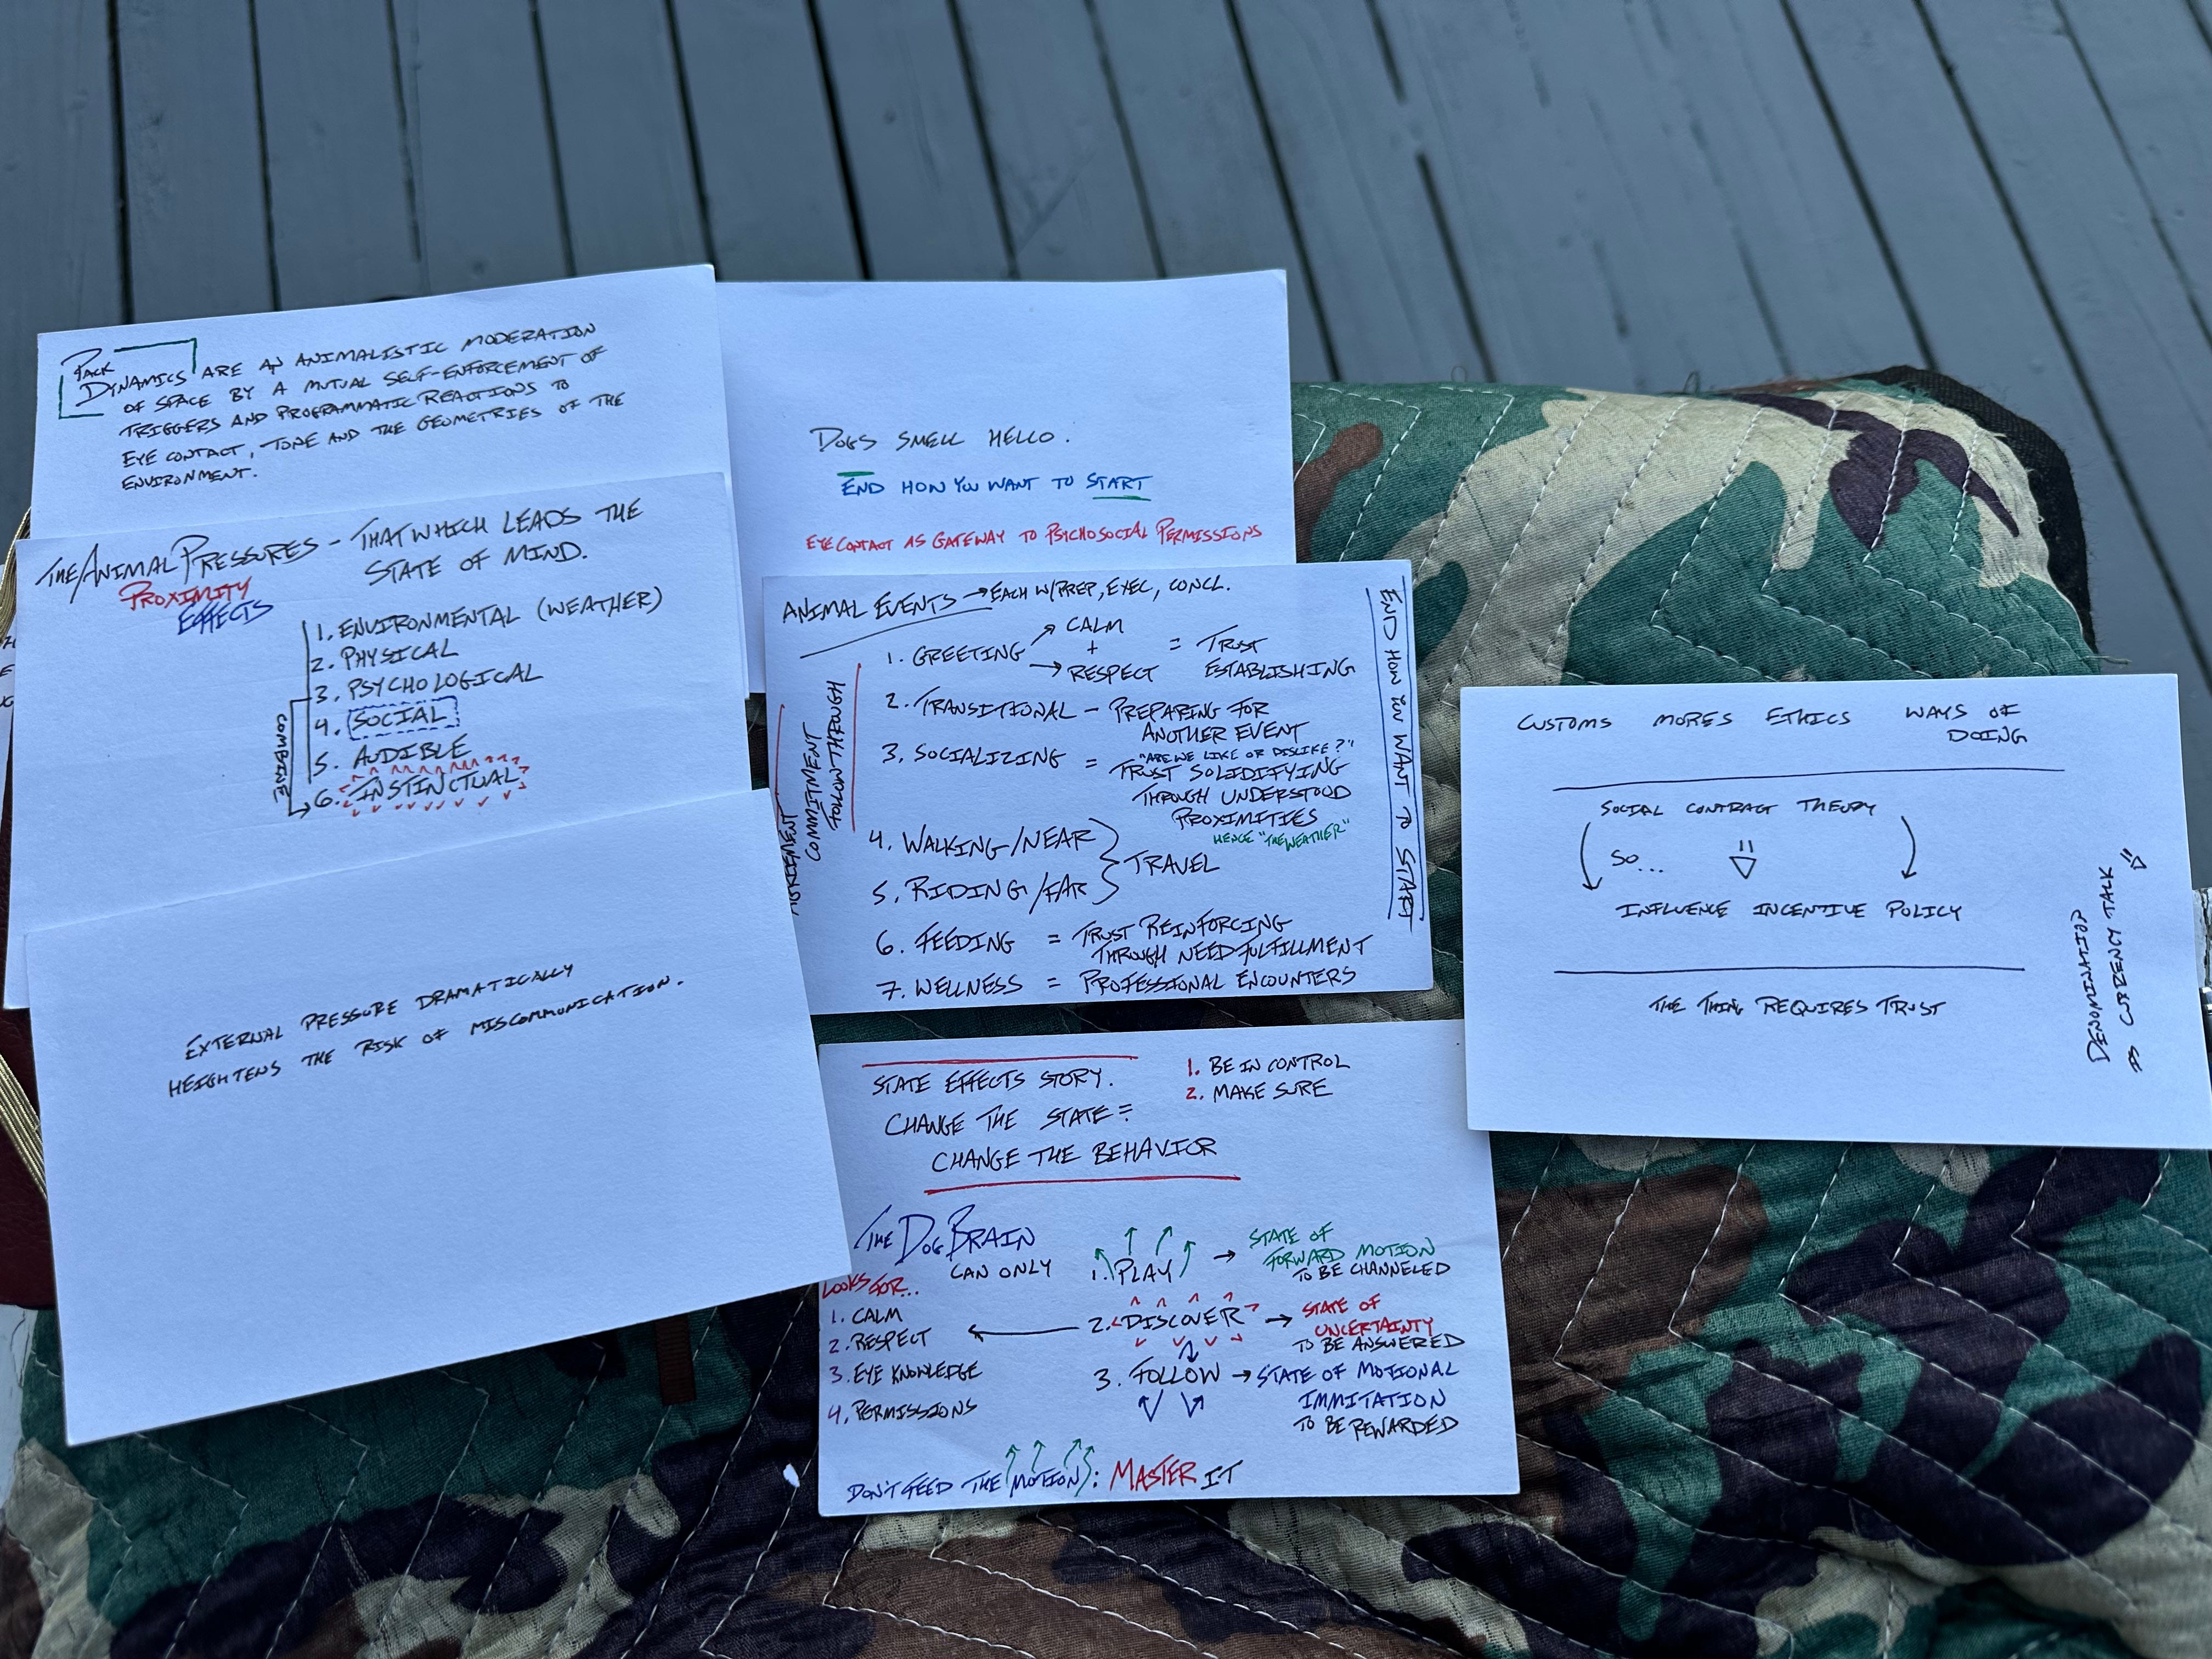 PACK
DYNAMICS ARE AN ANIMALISTIC MODERATION
OF SPACE BY A MUTUAL SELF-ENFORCEMENT OF
TRIGGERS AND PROGRAMMATIC REACTIONS TO
EYE CONTACT, TONE AND THE GEOMETRIES OF THE
ENVIRONMENT.
THE ANIMAL PRESSURES - THAT WHICH LEADS THE
STATE OF MIND.
PROXIMITY
EFFECTS
1. ENVIRONMENTAL (WEATHER)
2. PHYSICAL
3. PSYCHOLOGICAL
4. SOCIAL
5. AUDIBLE
6. INSTINCTUAL
COMBINE
EXTERNAL PRESSURE DRAMATICALLY
HEIGHTENS THE RISK OF MISCOMMUNICATION.
DOGS SMELL HELLO.
END HOW YOU WANT TO START
EYE CONTACT AS GATEWAY TO PSYCHOSOCIAL PERMISSIONS
ANIMAL EVENTS → EACH W/PREP, EXEC, CONCL.
1. GREETING → CALM + → RESPECT = TRUST
ESTABLISHING
2. TRANSITIONAL - PREPARING FOR
ANOTHER EVENT
3. SOCIALIZING = "ARE WE LIKE OR DISLIKE?"
TRUST SOLIDIFYING
THROUGH UNDERSTOOD
PROXIMITIES
HENCE "THE WEATHER"
4. WALKING/NEAR } TRAVEL
5. RIDING/FAR
6. FEEDING = TRUST REINFORCING
THROUGH NEED FULFILLMENT
7. WELLNESS = PROFESSIONAL ENCOUNTERS
COMMITMENT
FOLLOW THROUGH
END HOW YOU WANT TO START
STATE EFFECTS STORY.
CHANGE THE STATE =
CHANGE THE BEHAVIOR
1. BE IN CONTROL
2. MAKE SURE
THE DOG BRAIN
CAN ONLY
1. PLAY → STATE OF
FORWARD MOTION
TO BE CHANNELED
2. DISCOVER → STATE OF
UNCERTAINTY
TO BE ANSWERED
3. FOLLOW → STATE OF MOTIONAL
IMMITATION
TO BE REWARDED
LOOKS FOR...
1. CALM
2. RESPECT
3. EYE KNOWLEDGE
4. PERMISSIONS
DON'T FEED THE MOTION: MASTER IT
CUSTOMS MORES ETHICS WAYS OF
DOING
SOCIAL CONTRACT THEORY
SO...
INFLUENCE INCENTIVE POLICY
THE THING REQUIRES TRUST
DENOMINATION
AS CURRENCY TALK